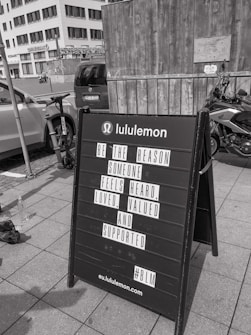 lululemon
BE THE REASON
SOMEONE
FEELS HEARD
LOVED VALUED
AND
SUPPORTED
eu.lululemon.com